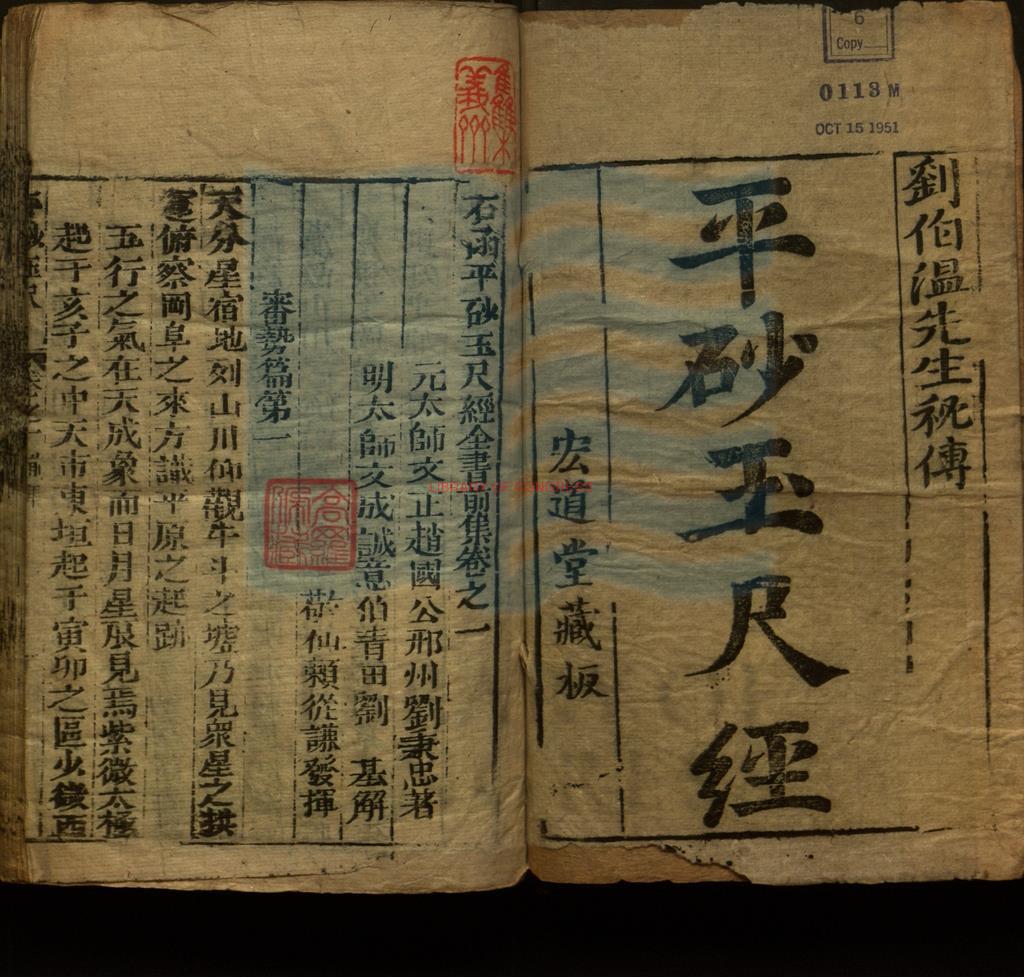 6
Copy
0113 M
OCT 15 1951
劉伯温先生祕傳
平砂玉尺經
宏道堂藏板
LIBRARY OF CONGRESS
石函平砂玉尺經全書前集卷之一
元太師文正趙國公邢州劉秉忠著
明太師文成誠意伯青田劉 基解
敬仙賴從謙發揮
審勢篇第一
天分星宿地列山川仰觀牛斗之墟乃見衆星之拱
運俯察岡阜之來方識平原之起跡
五行之氣在天成象而日月星辰見焉紫微太極
起于亥子之中天市東垣起于寅卯之區少微西